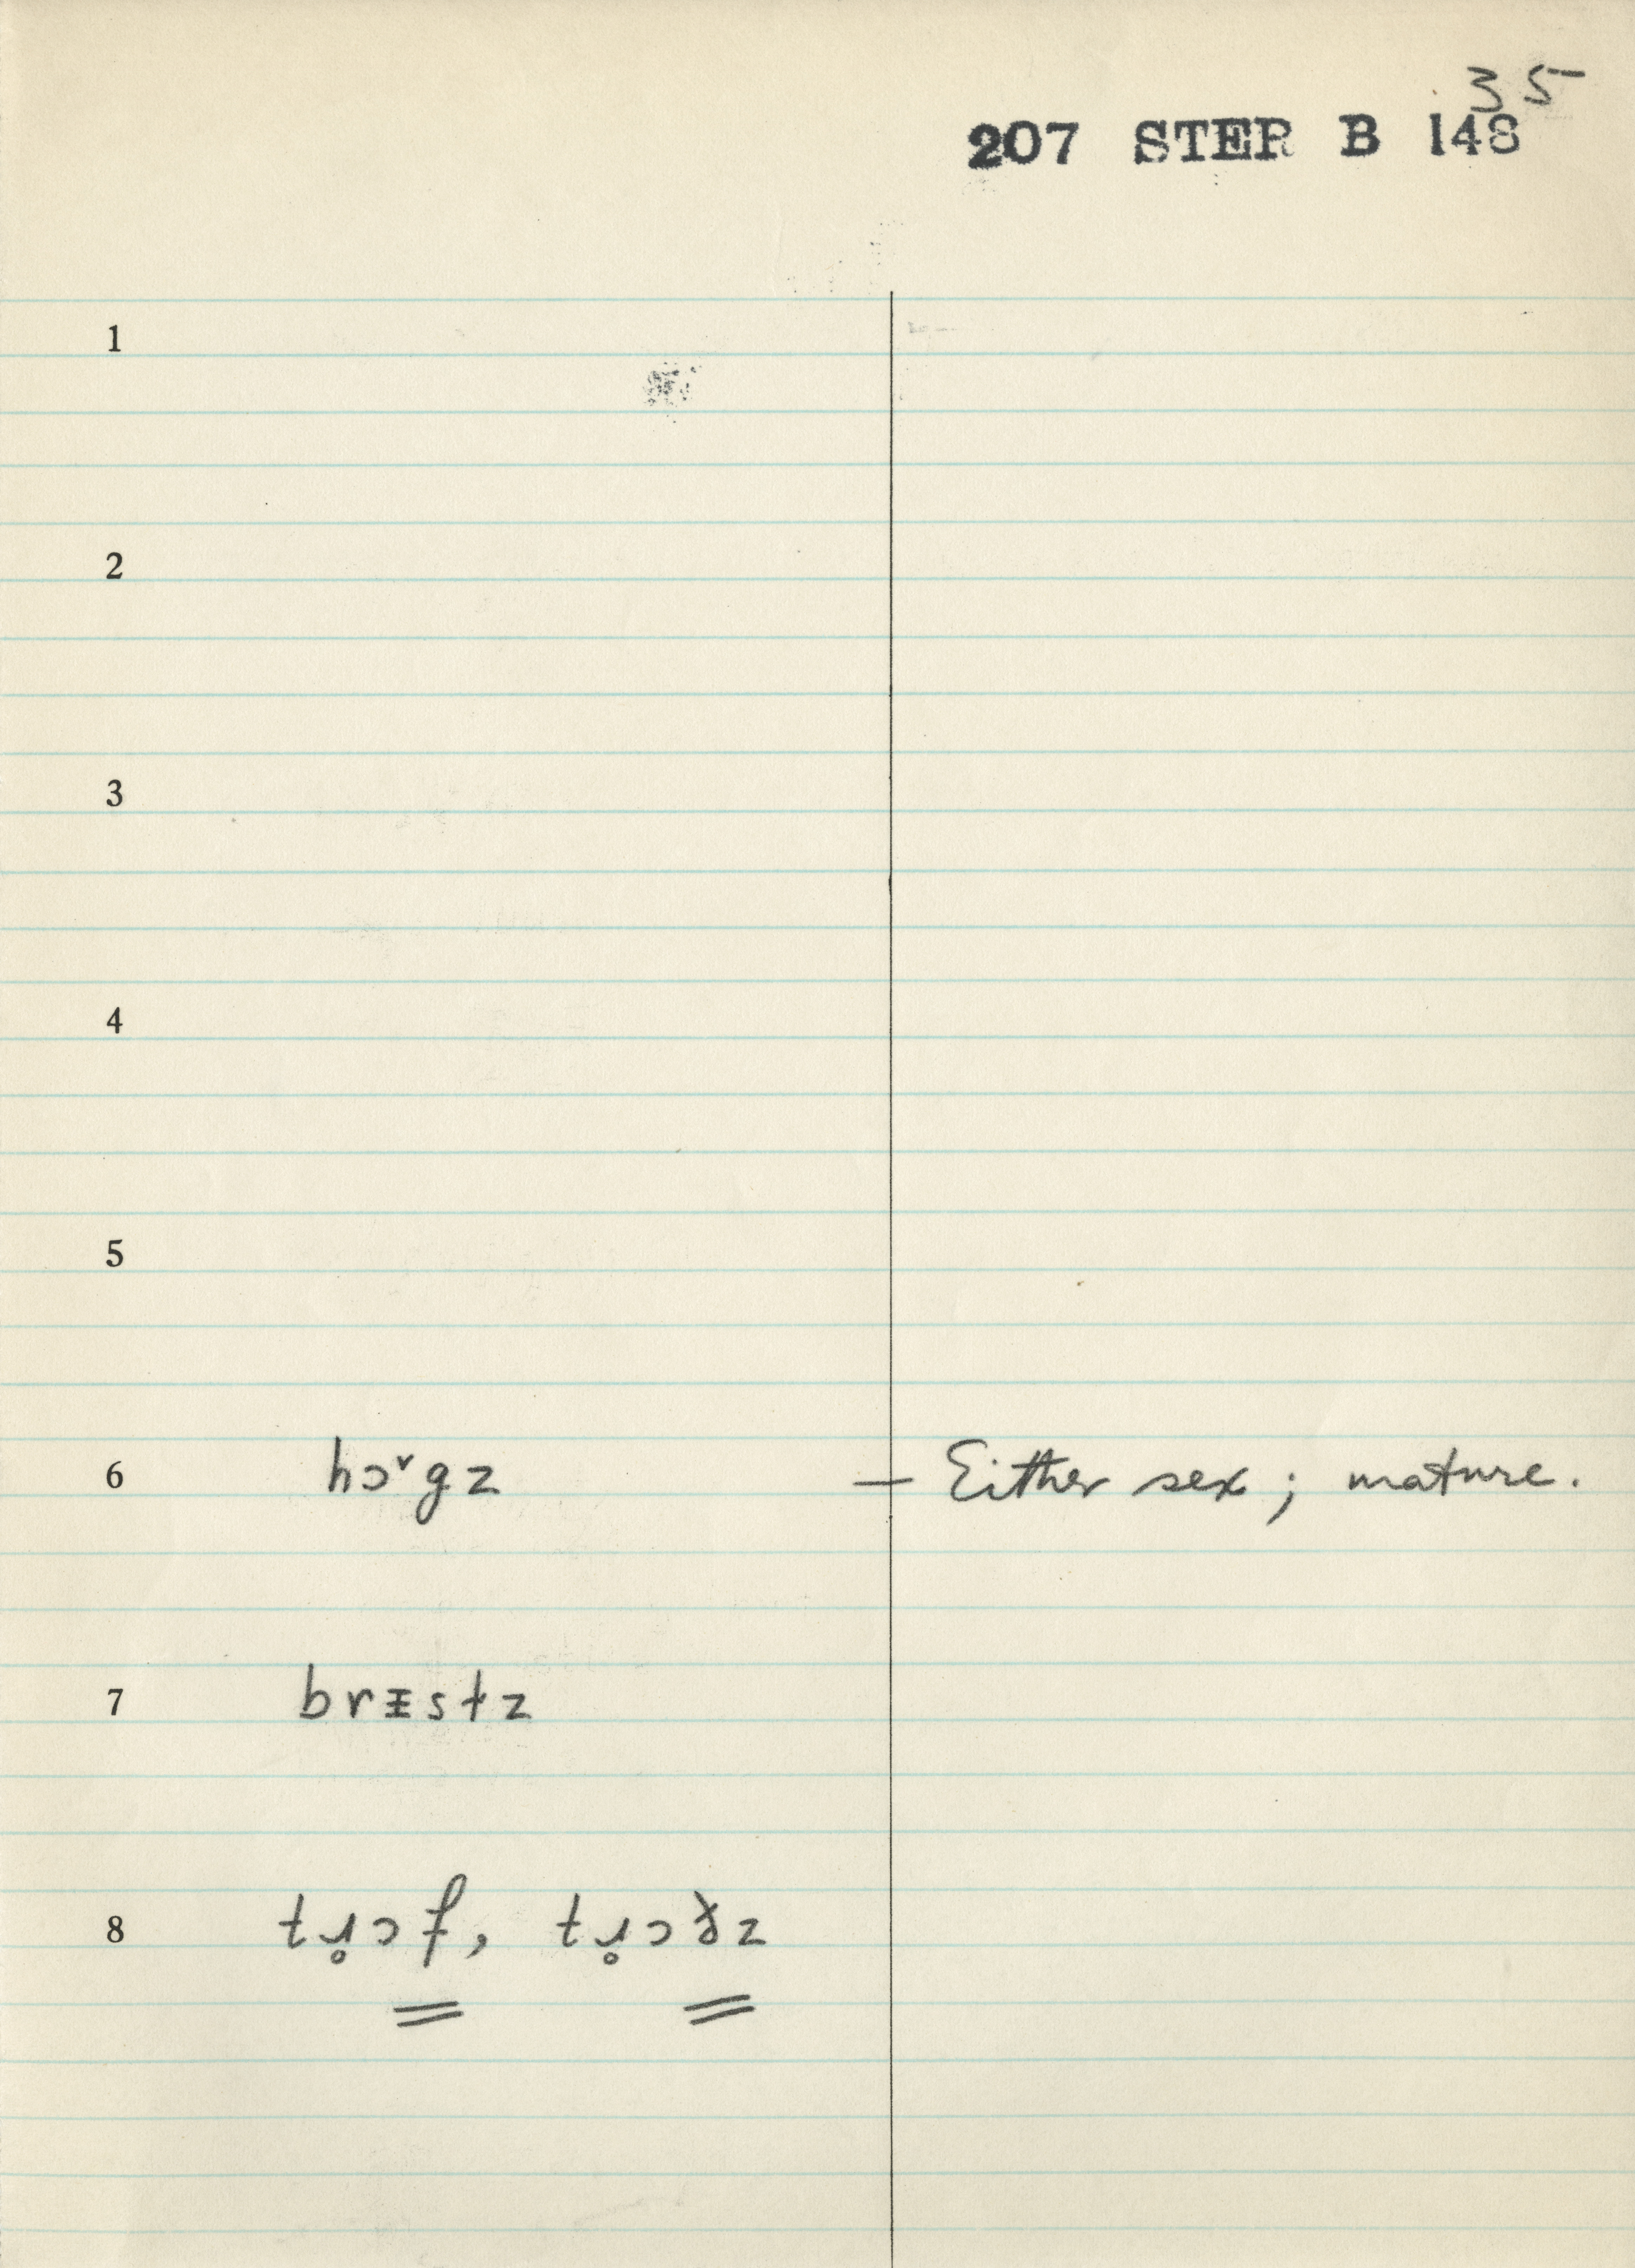 35
207 STER B 148
1
2
3
4
5
6 hɔ˅gz — Either sex; mature.
7 brᵻstz
8 tɹ̥ɔf, tɹ̥ɔ